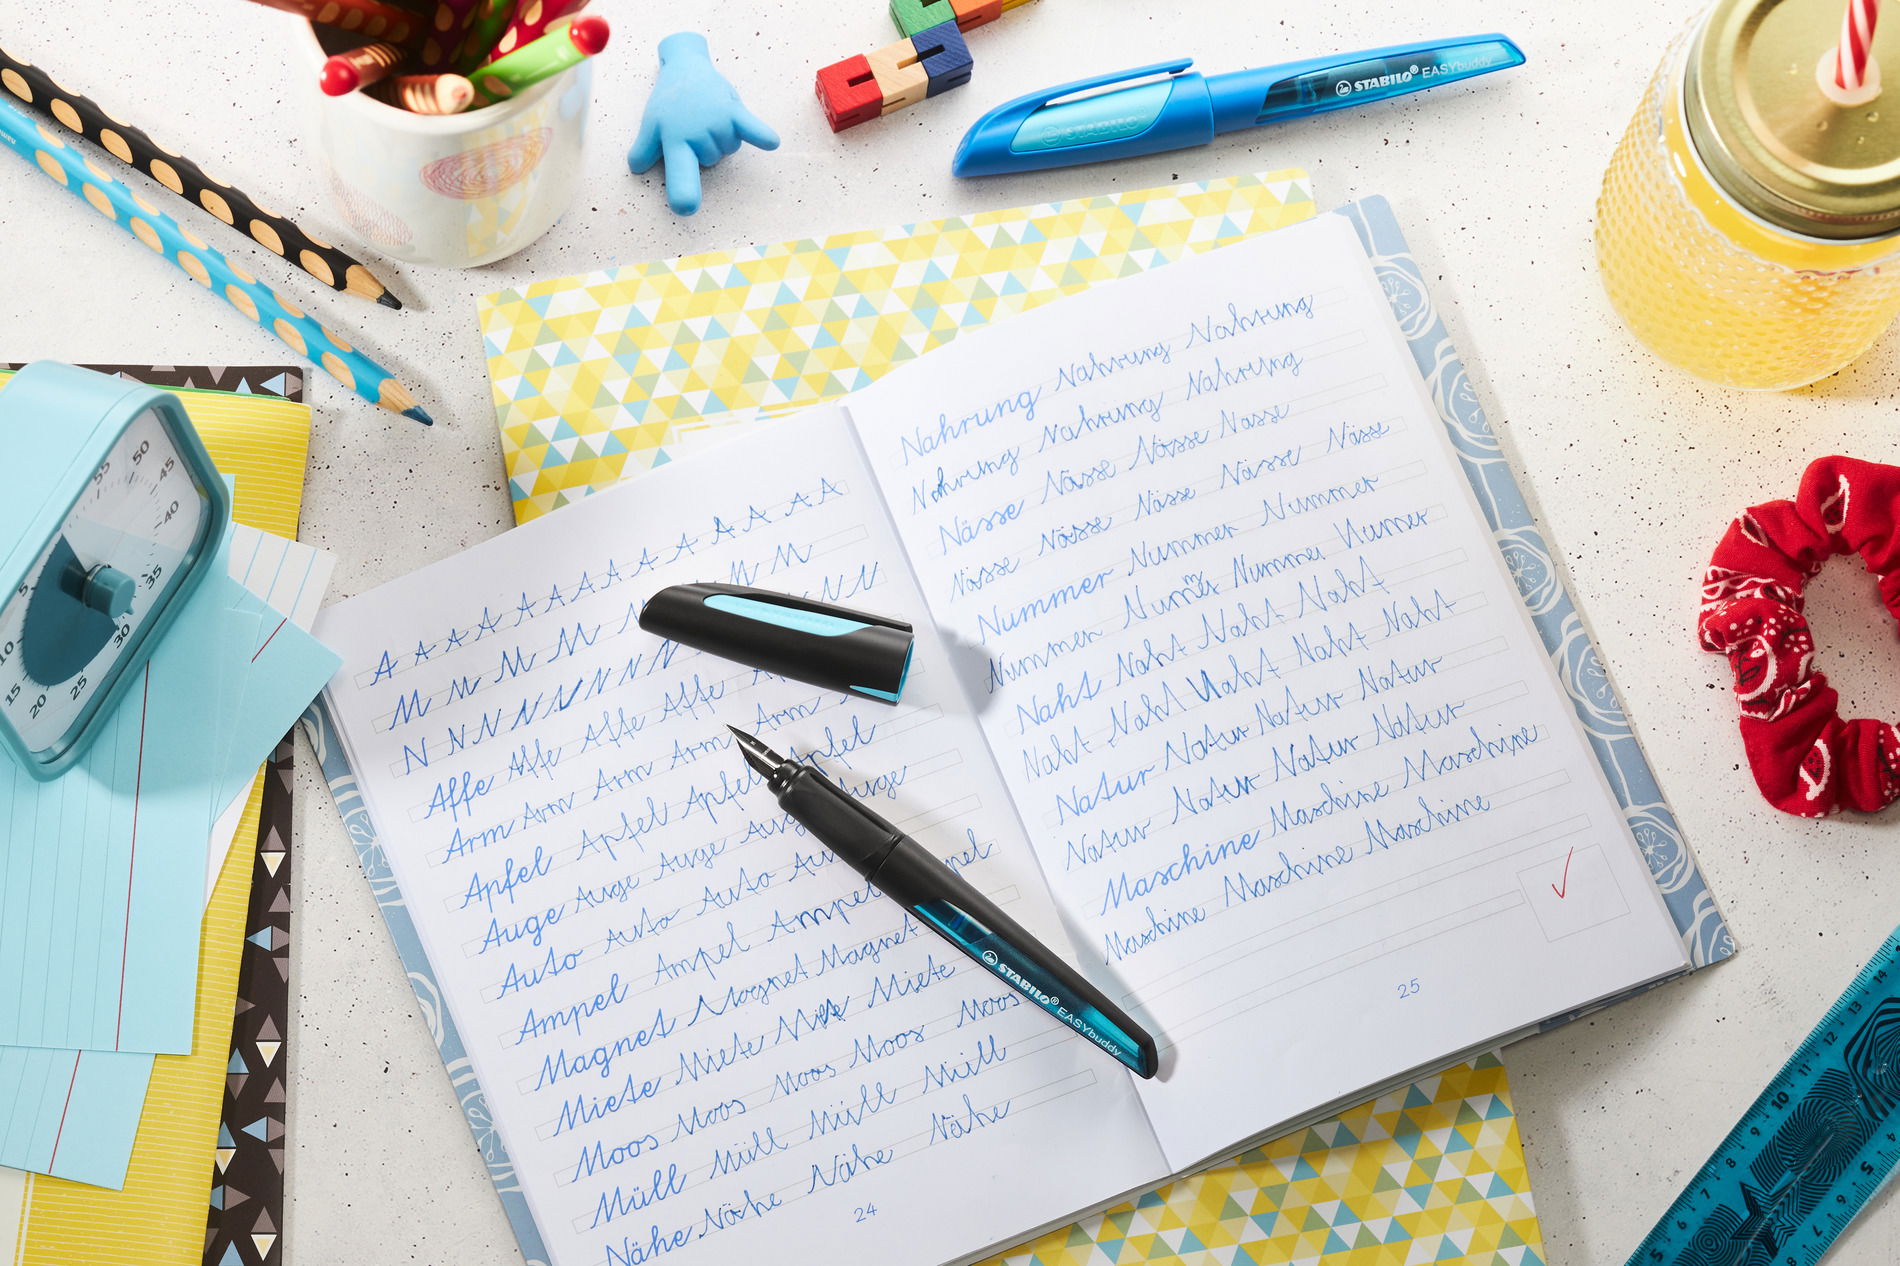 STABILO® EASYbuddy
STABILO
A A A A A A A A A A A A A
M M M M M M
N N N N N N N N N
Affe Affe Affe Affe
Arm Arm Arm Arm Arm
Apfel Apfel Apfel Apfel
Auge Auge Auge Auge Auge
Auto Auto Auto Auto
Ampel Ampel Ampel Ampel
Magnet Magnet Magnet
Miete Miete Miete Miete
Moos Moos Moos Moos
Müll Müll Müll Müll
Nähe Nähe Nähe Nähe
24
Nahrung Nahrung Nahrung
Nahrung Nahrung Nahrung
Nässe Nässe Nässe Nasse
Nässe Nässe Nässe Nässe Nässe
Nummer Nummer Nummer
Nummer Nummer Nummer Numer
Naht Naht Naht Naht
Naht Naht Naht Naht Naht
Natur Natur Natur Natur
Natur Natur Natur Natur
Maschine Maschine Maschine
Maschine Maschine Maschine
25
STABILO® EASYbuddy
55 50 45 40 35 30 25 20 15 10 5
14 13 12 11 10 9 8 7 6 5